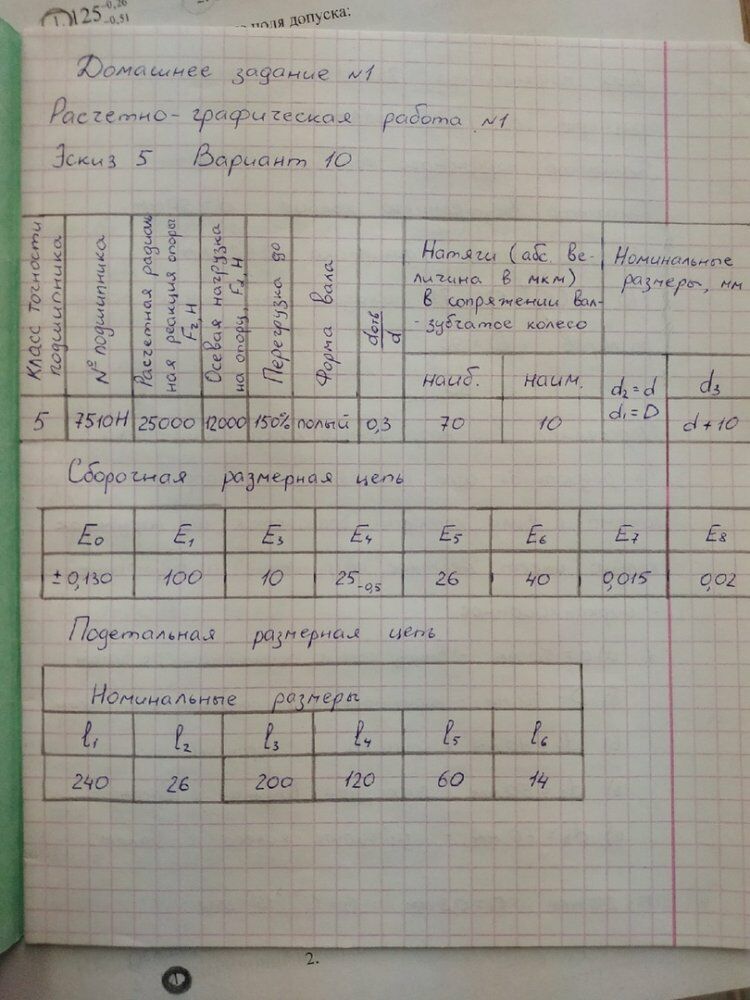 1.) 125 -0,26 -0,51
поля допуска:
Домашнее задание №1
Расчетно-графическая работа №1
Эскиз 5 Вариант 10
Класс точности подшипника
№ подшипника
Расчетная радиальная реакция опоры Fr, Н
Осевая нагрузка на опору, Fa, Н
Перегрузка до
Форма вала
dотв/d
Натяги (абс. величина в мкм) в сопряжении вал-зубчатое колесо
Номинальные размеры, мм
наиб. наим. d2=d d1=D d3
5 7510Н 25000 12000 150% полый 0,3 70 10 d+10
Сборочная размерная цепь
E0 E1 E3 E4 E5 E6 E7 E8
±0,130 100 10 25-0,5 26 40 0,015 0,02
Подетальная размерная цепь
Номинальные размеры
l1 l2 l3 l4 l5 l6
240 26 200 120 60 14
2.
1